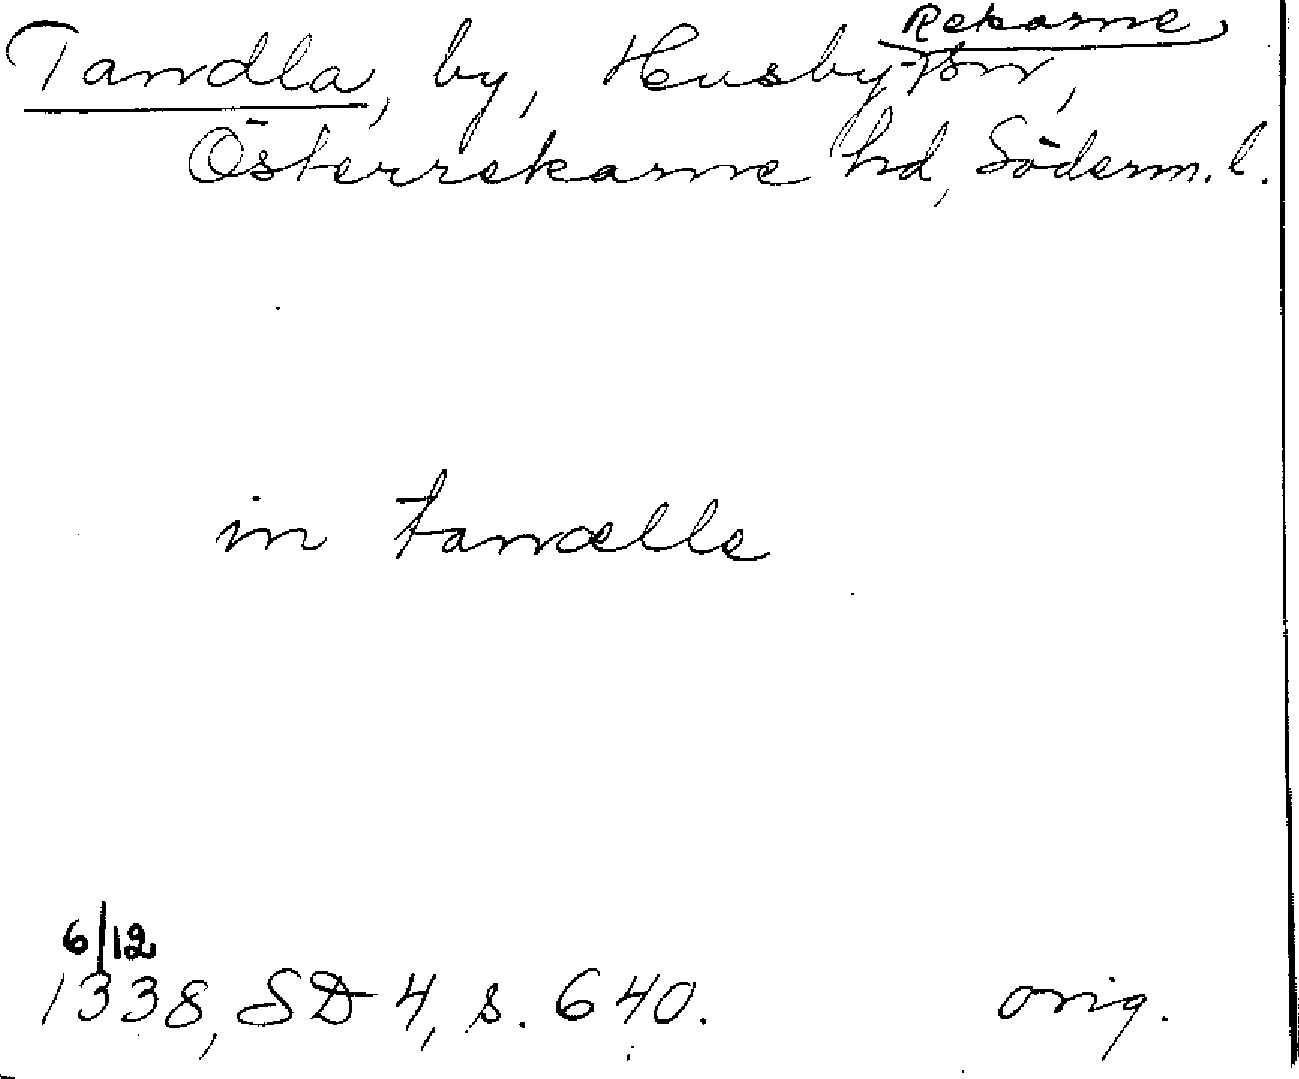 Rekarne
Tandla, by, Husby- sn,
Österrekarne hd, Söderm. l.
in tanællæ
6/12
1338, SD 4, s. 640. orig.